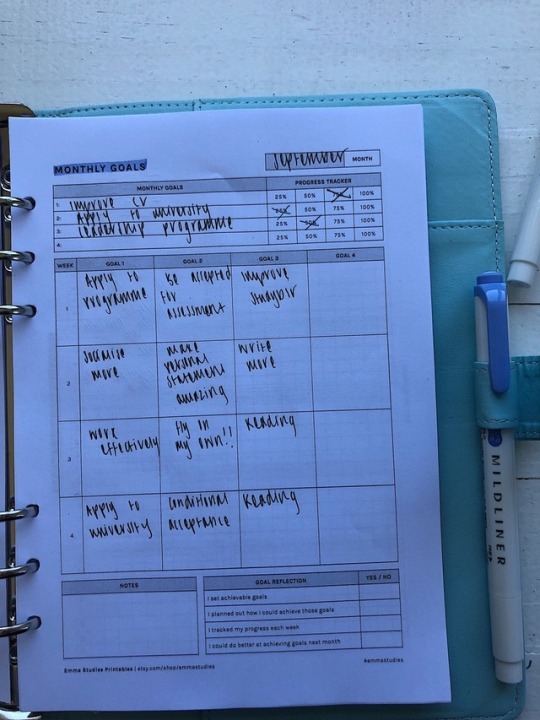 MONTHLY GOALS
September MONTH
MONTHLY GOALS PROGRESS TRACKER
1: improve CV 25% 50% 75% 100%
2: Apply to university 25% 50% 75% 100%
3: leadership programme 25% 50% 75% 100%
4: 25% 50% 75% 100%
WEEK GOAL 1 GOAL 2 GOAL 3 GOAL 4
1
Apply to
programme
be accepted
for
assessment
improve
2
socialise
more
make
personal
statement
amazing
write
more
3
work
effectively
fly on
my own!!
Reading
4
Apply to
university
conditional
acceptance
Reading
NOTES
GOAL REFLECTION YES / NO
I set achievable goals
I planned out how I could achieve those goals
I tracked my progress each week
I could do better at achieving goals next month
Emma Studies Printables | etsy.com/shop/emmastudies
#emmastudies
MILDLINER